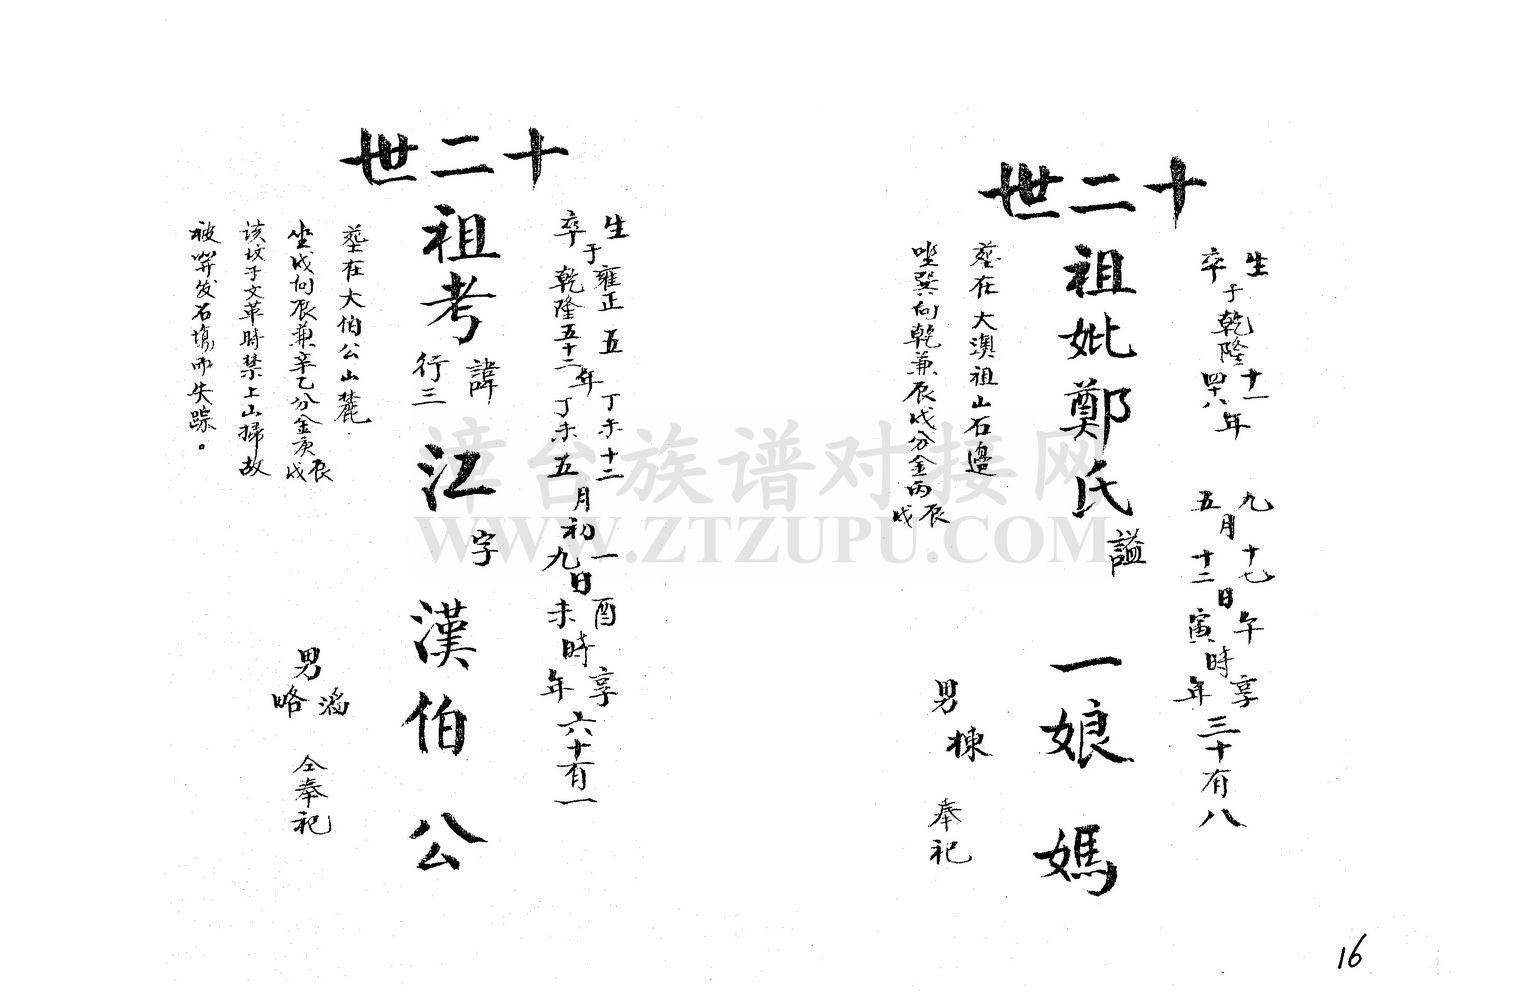 十二世
生 卒 于 乾隆 十一 四十六 年 九 五 月 十七 十二 日 午 寅 時 享年 三十有八
祖妣鄭氏 謚 一娘媽
葬在大澳祖山石邊
坐巽向乾兼辰戌分金丙辰 戌
男 棟 奉祀
十二世
生 卒 于 雍正五 乾隆五十二 年 丁未十二 丁未五 月 初 一 九 日 酉 未 時 享年 六十有一
祖考 諱 行三 江 字 漢伯公
葬在大伯公山麓
坐戌向辰兼辛乙分金庚辰 戌
該坟于文革時禁上山掃故
被開发石塊而失踪。
男 滔 略 仝奉祀
16
漳台族谱对接网
WWW.ZTZUPU.COM